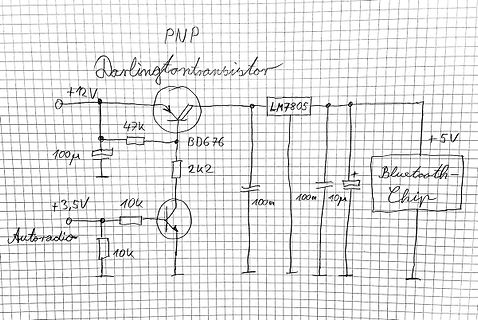 PNP
Darlingtontransistor
+12V
LM7805
47k
BD676
100µ
+5V
2k2
Bluetooth-
Chip
+
100n
100n
10µ
+3,5V
10k
Autoradio
10k